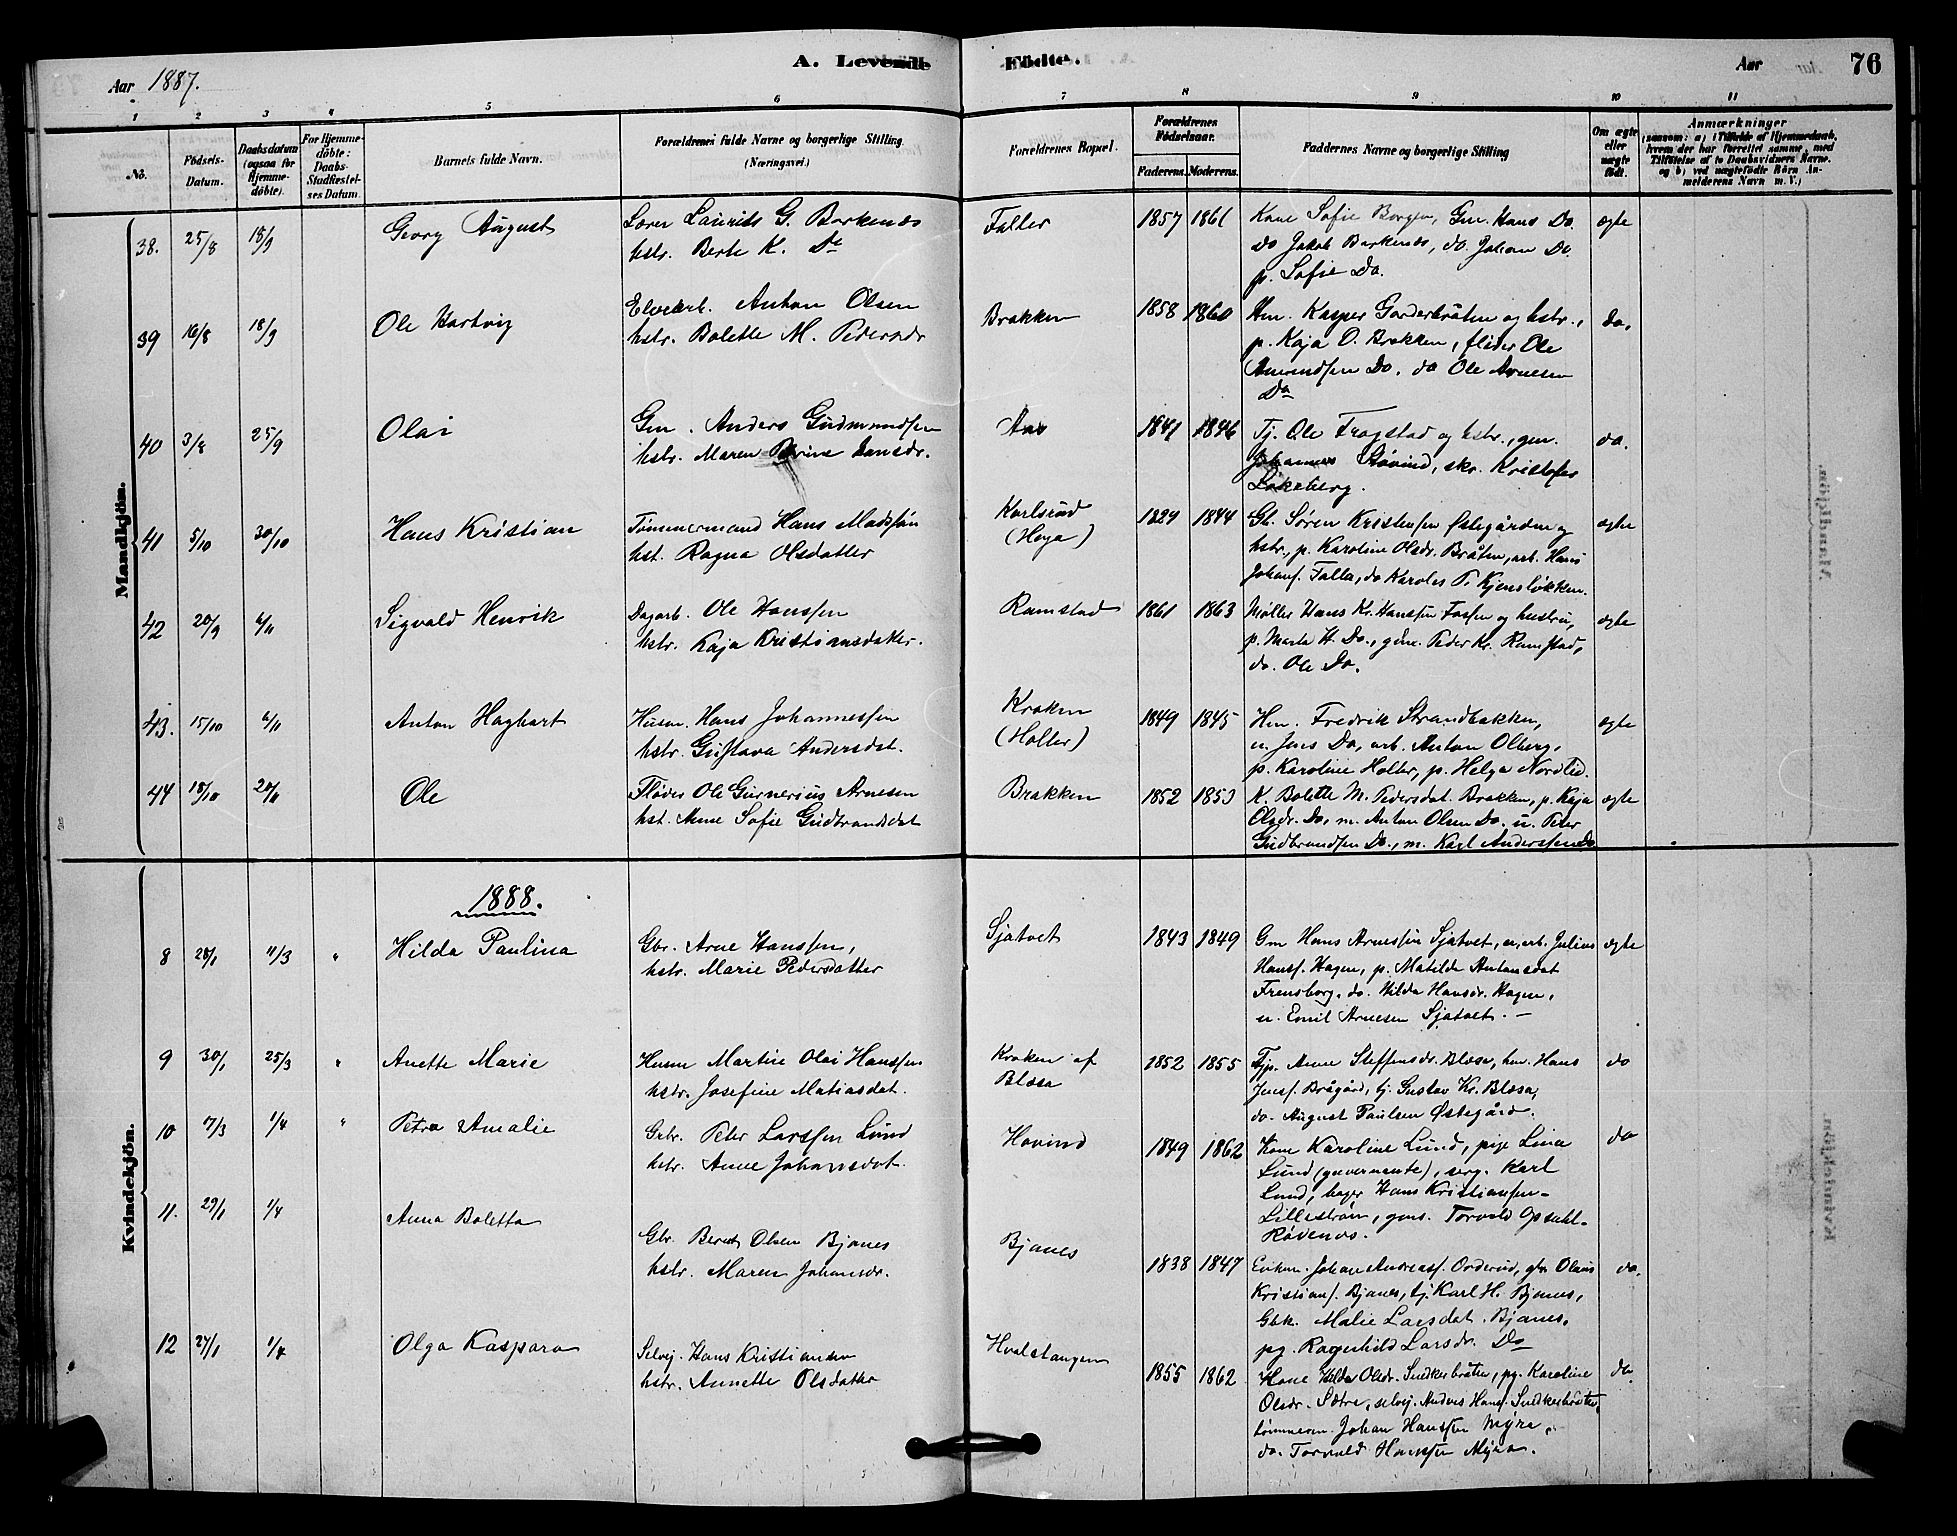 Aar 1887.
A. Levende Fødte.
Aar 76
1 2 3 4 5 6 7 8 9 10 11
No.
Fødsels-Datum.
Daabsdatum (ogsaa for Hjemmedøbte).
For Hjemmedøbte: Daabs-Stadfæstelses Datum.
Barnets fulde Navn.
Forældrenes fulde Navne og borgerlige Stilling (Næringsvei.)
Forældrenes Bopæl.
Forældrenes Fødselsaar.
Faderens. Moderens.
Faddernes Navne og borgerlige Stilling
Om ægte eller uægte født.
Anmærkninger
Mandkjön.
38. 25/8 18/9 Georg August
Laurits G. Barkenæs
hstr. Berte K. Do
Falter 1857 1861
Kone Sofie Borgen, Gm. Hans Do.
do Jakob Barkenæs, do. Johan Do
p. Sofie Do.
ægte
39 16/8 18/9 Ole Hartvig
Elvearb. Anton Olsen
hstr. Bolette M. Pedersdr
Brakken 1858 1860
Hm. Kasper Garderbråten og hstr.,
p. Kaja O. Brakken, fløder Ole
Amundsen Do. do Ole Arnesen
Do
do.
40 3/8 25/9 Olai
Gm. Anders Gudmundsen
hstr. Maren Dansdr.
Aas 1841 1846
Tj. Ole Frogstad og hstr., gm.
Johannes Støvind, skr. Kristofer
Lakeberg.
do.
41 5/10 30/10 Hans Kristian
Tømmermand Hans Madssøn
hst. Ragna Olsdatter
Karlsrud
(Heya)
1829 1844
Gb. Søren Kristensen Østegården og
hstr., p. Karoline Olsdr. Bråten, arb. Hans
Johans. Falla, do Karoles P. Kjensløkken.
ægte
42 20/9 6/11 Sigvald Henrik
Dagarb. Ole Hanssen
hstr. Kaja Kristiansdatter.
Ramstad 1861 1863
Møller Hans Kr. Hanssen Fossen og hustru,
p. Marta H. Do., gdm. Peder Kr. Ramstad,
do. Ole Do.
ægte
43. 15/10 6/11 Anton Haghart
Husm. Hans Johannessen
hstr. Gustava Andersdat.
Kroken
(Holter)
1849 1845
Hm. Fredrik Strandbakken,
u. Jens Do, arb. Anton Olberg,
p. Karoline Holter, p. Helga Nordlid.
ægte
44 18/10 20/11 Ole
Fløder Ole Gurnerius Arnesen
hst. Anne Sofie Gudbrandsdat
Brakken 1852 1853
K. Bolette M. Pedersdat. Brakken, p. Kaja
Olsdr. Do, m. Anton Olsen Do. u. Peter
Gudbrandsen Do., m. Karl Anderssen Do
ægte
Kvindekjön.
1888.
8 28/1 11/3 " Hilda Paulina
Gbr. Arne Hanssen,
hstr. Marie Pedersdatter
Sjatvet 1843 1849
Gm Hans Arnessen Sjatvet, arb. Julius
Hans. Hagen, p. Matilde Antonsdat
Frensborg, do. Hilda Hansdr. Hagen,
u. Emil Arnesen Sjatvet. –
ægte
9 30/1 25/3 " Anette Marie
Husm Martin Olai Hanssen
hstr. Josefine Matiasdat.
Kroken af
Blæsa
1852 1855
Tjp. Anne Steffensdr. Blæsa, hm. Hans
Jens. Brågård, tj. Gustav Kr. Blæsa,
do. August Paulsen Østegård.
do
10 7/3 1/4 " Petra Amalie
Grbr. Peter Larssen Lund
hstr. Anne Johansdat.
Hovind 1849 1862
Kone Karoline Lund, pige Lina
Lund (guvernante), serg. Karl
Lund, bager Hans Kristiansen-
Lillestrøm, gms. Torvald Opsahl-
Rødenæs.
do
11. 29/1 1/4 Anna Boletta
Gbr. Bernt Olsen Bjanes
hstr. Maren Johansdr.
Bjanes 1838 1847
Enkm. Johan Andreass. Orderud, gbr Olaus
Kristians. Bjanes, tj. Karl H. Bjanes,
Gbk. Malie Larsdat. Bjanes,
pg. Ragnhild Larsdr. Do
do.
12 27/1 1/4 Olga Kaspara
Selvej. Hans Kristiansen
hstr. Annette Olsdatter
Hvalstangen 1855 1862
Kone Hilda Olsdr. Snekkerbråten, pg. Karoline
Olsdr. Sætra, selvej. Anders Hans. Snekkerbråten,
tømmerm. Johan Hanssen Myra,
do. Torvald Hanssen Myra.
do.